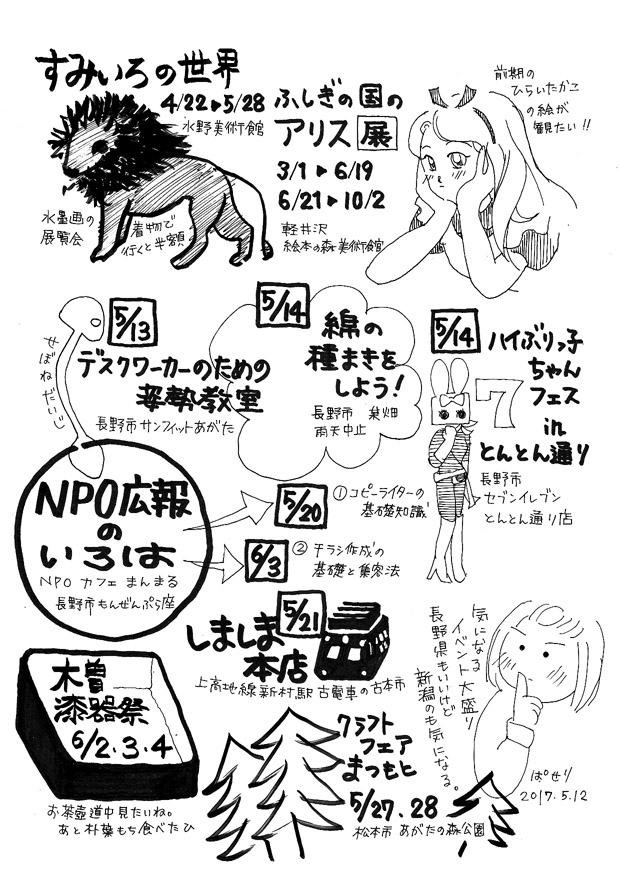 すみいろの世界
4/22▶5/28
水野美術館
水墨画の
展覧会
着物で
行くと半額
ふしぎの国の
アリス展
3/1▶6/19
6/21▶10/2
軽井沢
絵本の森美術館
前期の
ひらいたかこ
の絵が
観たい!!
5/13
デスクワーカーのための
姿勢教室
長野市サンフィットあがた
せぼねだいじ
5/14
綿の
種まきを
しよう!
長野市 巣畑
雨天中止
5/14
ハイぶりっ子
ちゃん
フェス
in
とんとん通り
長野市
セブンイレブン
とんとん通り店
7
NPO広報
の
いろは
NPO カフェ まんまる
長野市もんぜんぷら座
5/20
①コピーライターの
基礎知識
6/3
②チラシ作成の
基礎と集客法
5/21
しましま
本店
上高地線新村駅 古電車の古本市
木曽
漆器祭
6/2・3・4
お茶壺道中見たいね。
あと朴葉もち食べたひ
クラフト
フェア
まつもと
5/27.28
松本市 あがたの森公園
気になる
イベント大盛り
長野県もいいけど
新潟のも気になる。
ぱせり
2017.5.12